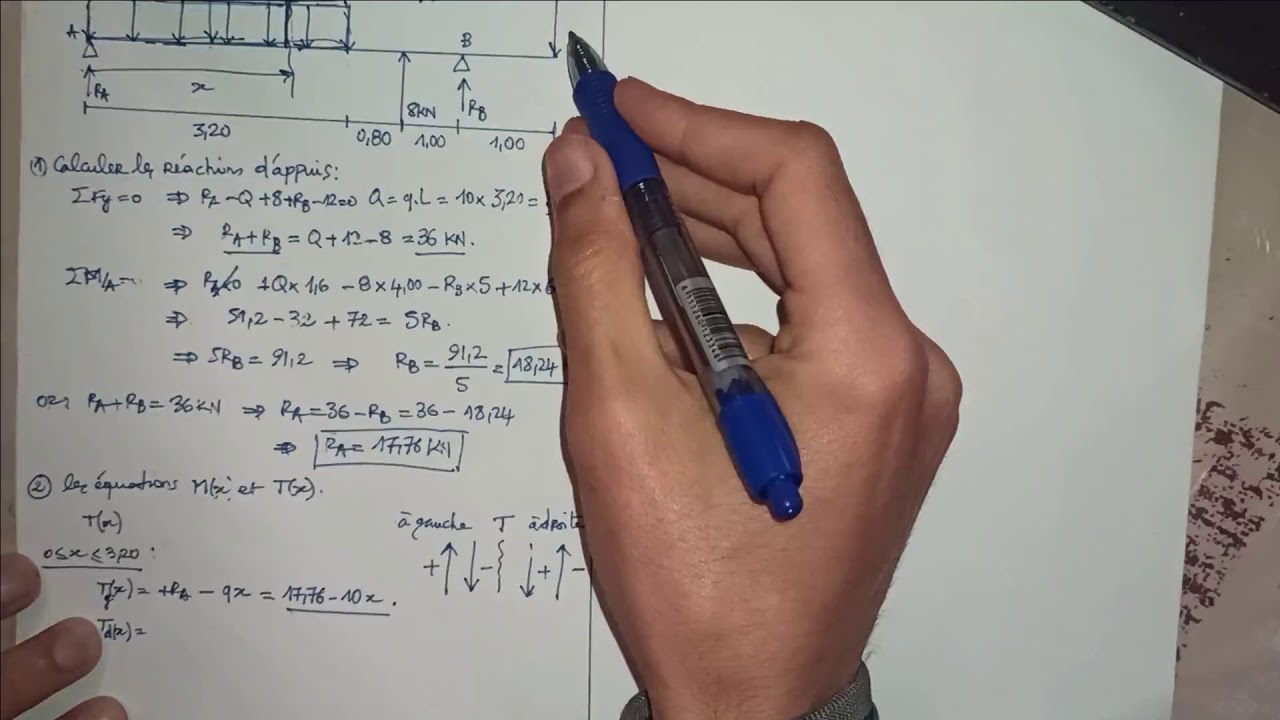 A B
x
RA 8KN RB
3,20 0,80 1,00 1,00
① Calculer les réactions d'appuis:
ΣFy=0 ⇒ RA-Q+8+RB-12=0 Q = q.L = 10 x 3,20 =
⇒ RA+RB = Q+12-8 = 36 KN.
ΣM/A= ⇒ RAx0 +Qx1,6 - 8x4,00 - RBx5 + 12x6
⇒ 51,2 - 32 + 72 = 5RB.
⇒ 5RB = 91,2 ⇒ RB = 91,2/5 = 18,24
or RA+RB = 36KN ⇒ RA = 36-RB = 36 - 18,24
⇒ RA = 17,76 KN
② les équations M(x) et T(x).
T(x) à gauche T à droite
0≤x≤3,20 : + - + -
Tg(x) = +RA - qx = 17,76-10x.
Td(x) =